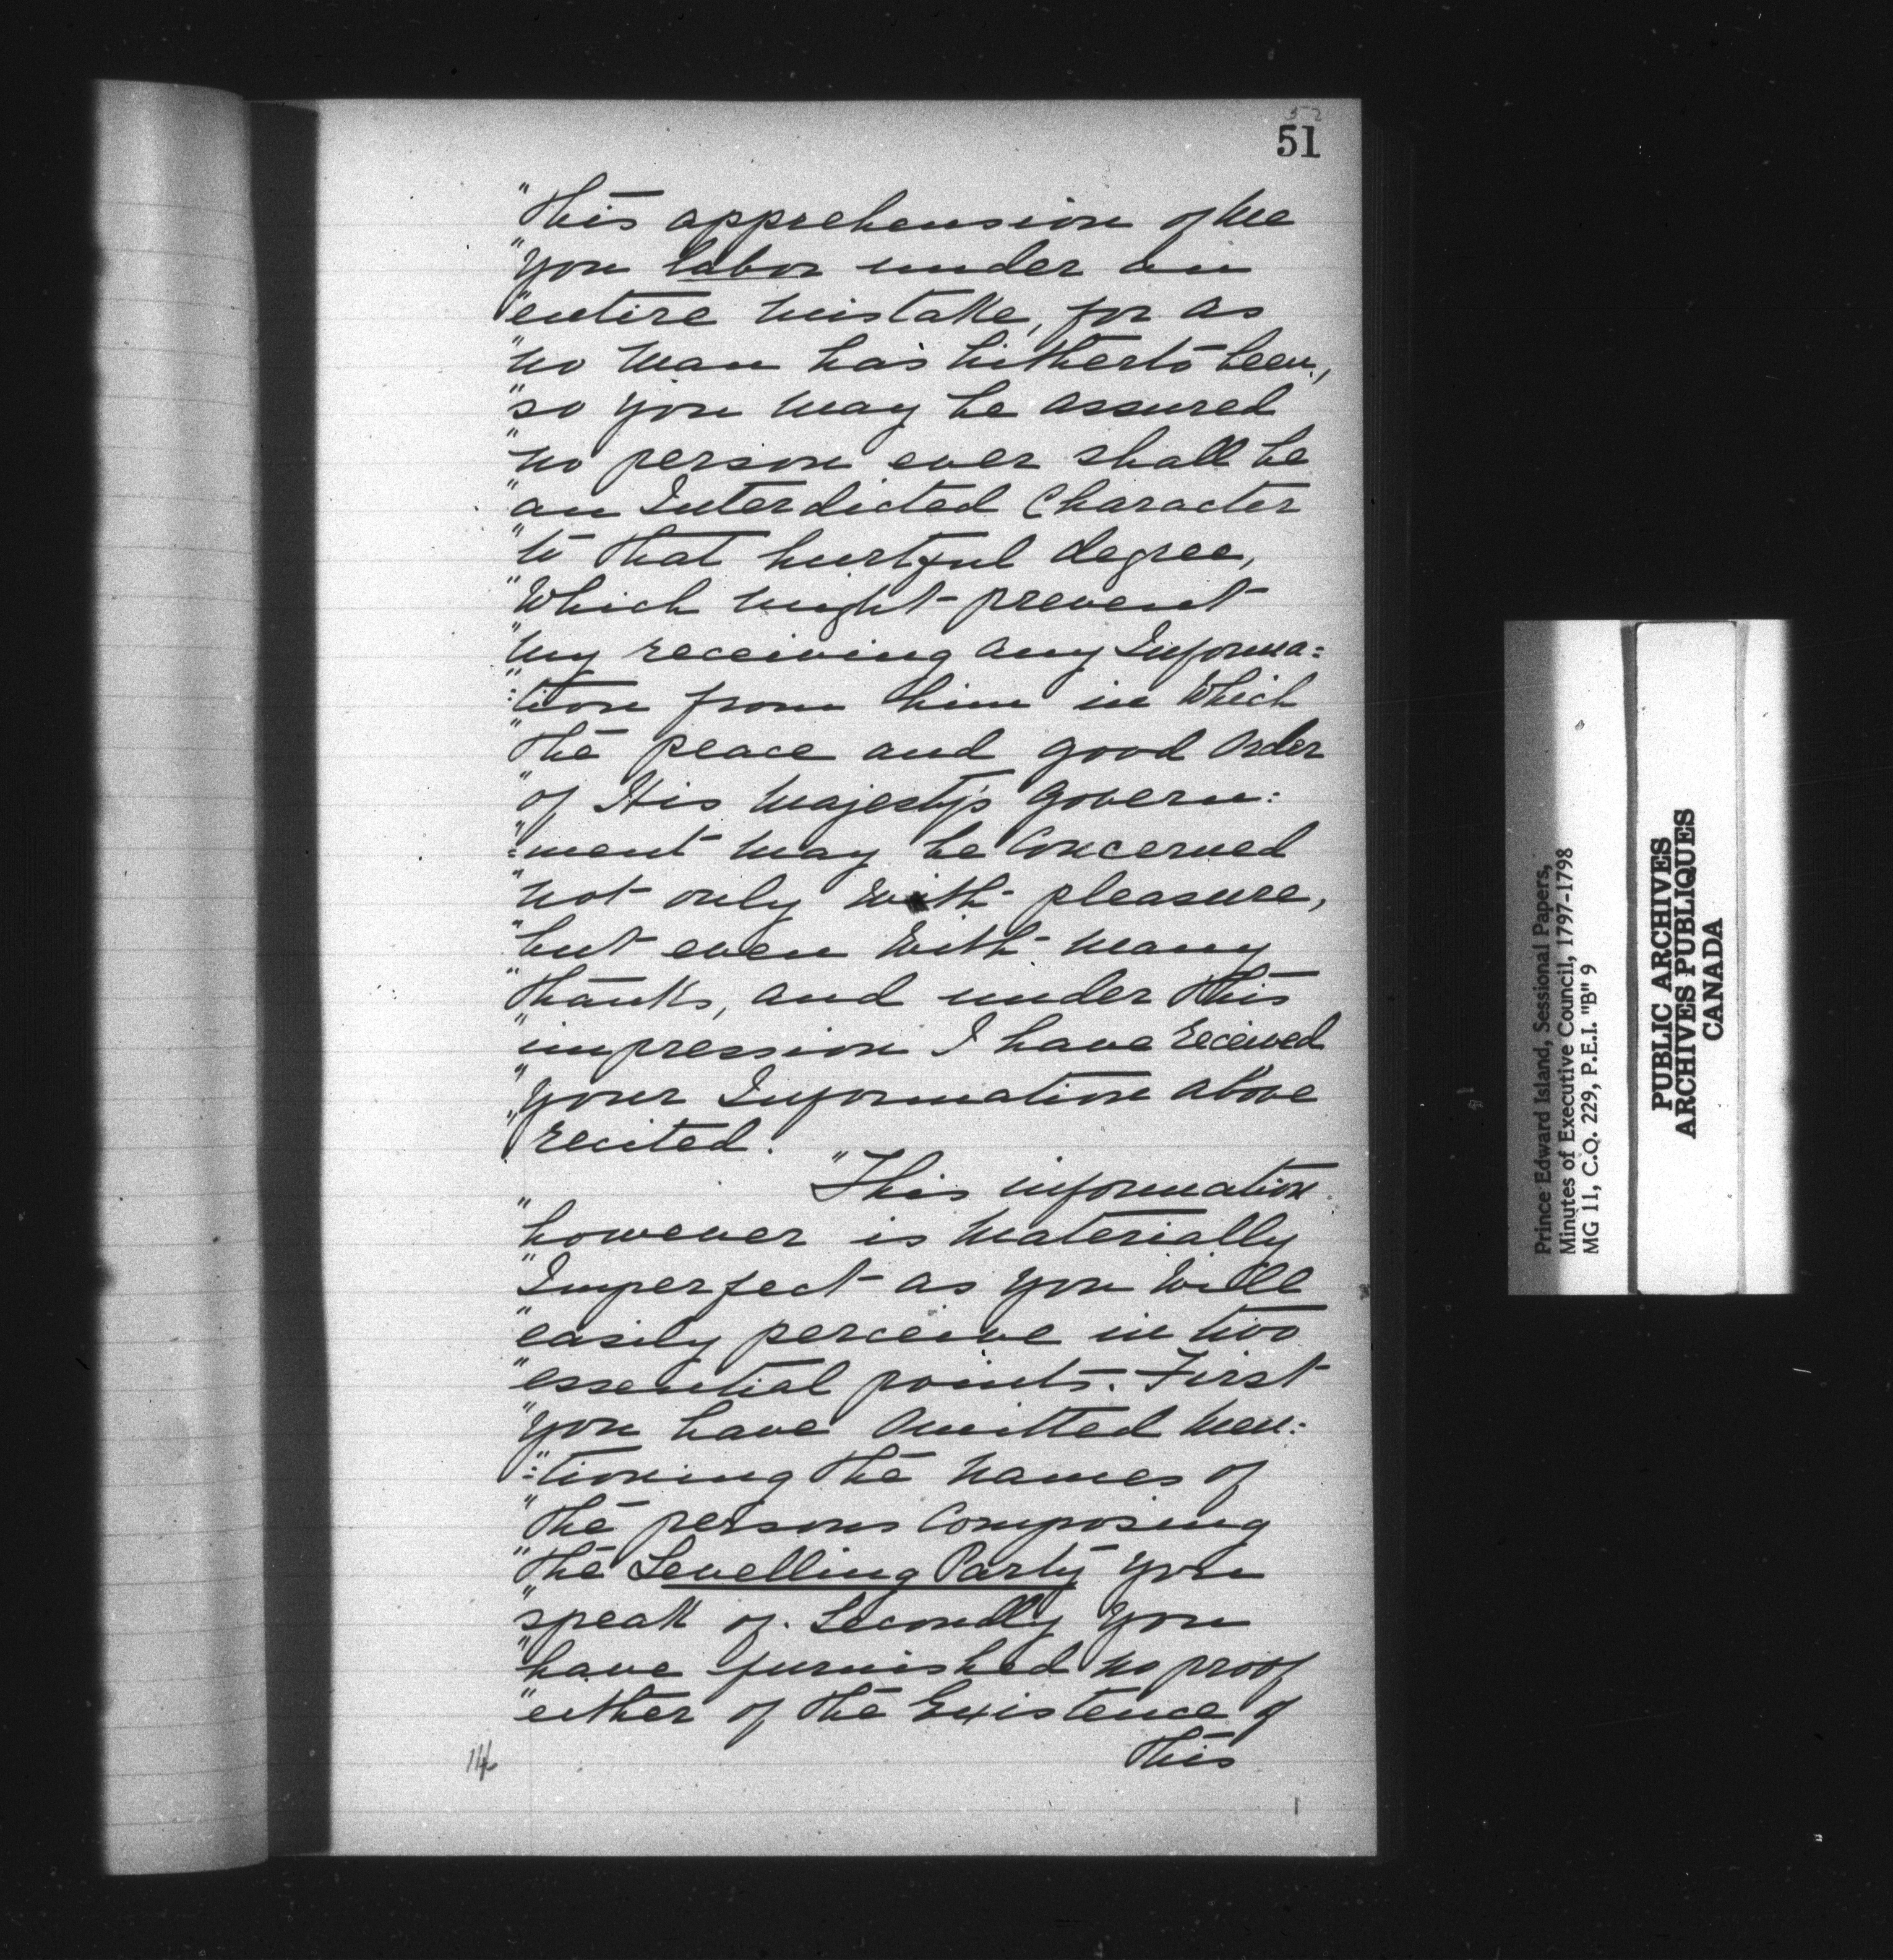 52
51
"This apprehension of Me
"you labor under an
"entire mistake, for as
"no Man has hitherto been,
"so you may be assured
"no person ever shall be
"an Interdicted Character
"to that hurtful degree,
"Which might prevent
"my receiving any Informa=
"=tion from him in Which
"the peace and good Order
"of His Majesty's Govern=
"=ment may be Concerned
"not only with pleasure,
"but even With many
"thanks, and under this
"impression I have received
"your Information above
"recited.
"This information
"however is Materially
"Imperfect as you Will
"easily perceive in two
"essential points. First
"you have Omitted Men=
"=tioning the Names of
"the persons Composing
"the Levelling Party you
"speak of. Secondly you
"have furnished no proof
"either of the Existence of
this
Prince Edward Island, Sessional Papers,
Minutes of Executive Council, 1797-1798
MG 11, C.O. 229, P.E.I. "B" 9
PUBLIC ARCHIVES
ARCHIVES PUBLIQUES
CANADA